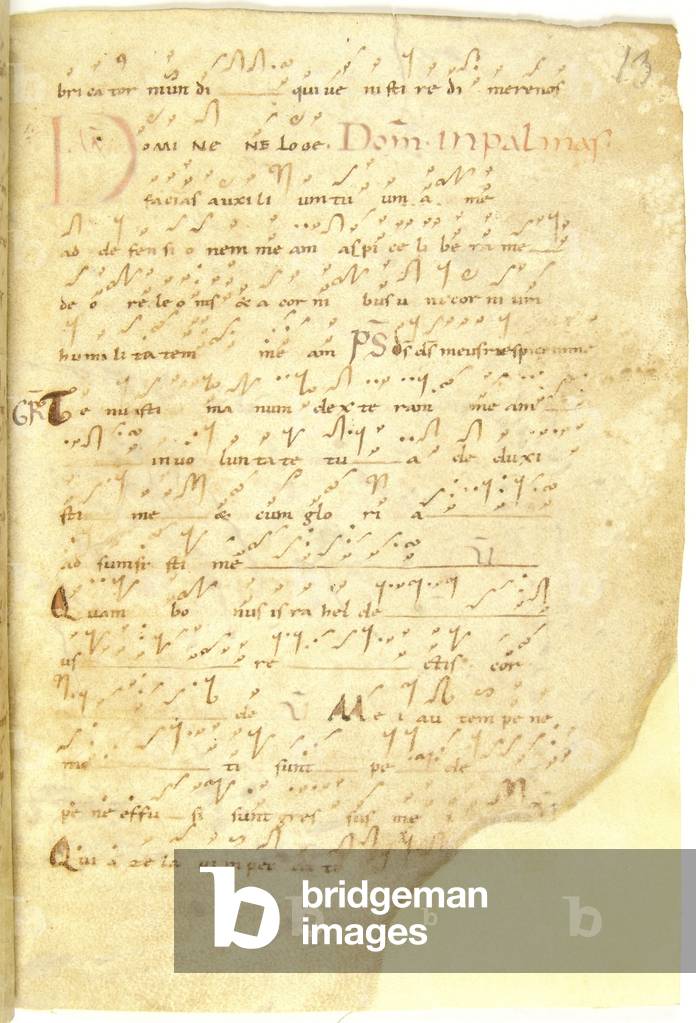 13
bricator mundi qui ve nisti re di merenos
DOMI NE NE LO GE. Dom̄. inpalmas.
facias auxili um tu um a me
ad de fen si o nem me am aspi ce li be ra me
de o re le o nis & a cor ni bus u ni cor ni um
humi li ta tem me am PS d̄s d̄s meus respice in me
GR̄ Te nu isti ma num dex te ram me am
in vo lun ta te tu a de duxi
sti me & cum glo ri a
ad sumsi sti me V̄
Quam bo nus is ra hel de
us re ctis cor
de V̄ Me i au tem pe ne
mo ti sunt pe de
pe ne effu si sunt gres sus me
Qui a ze la
b bridgeman images